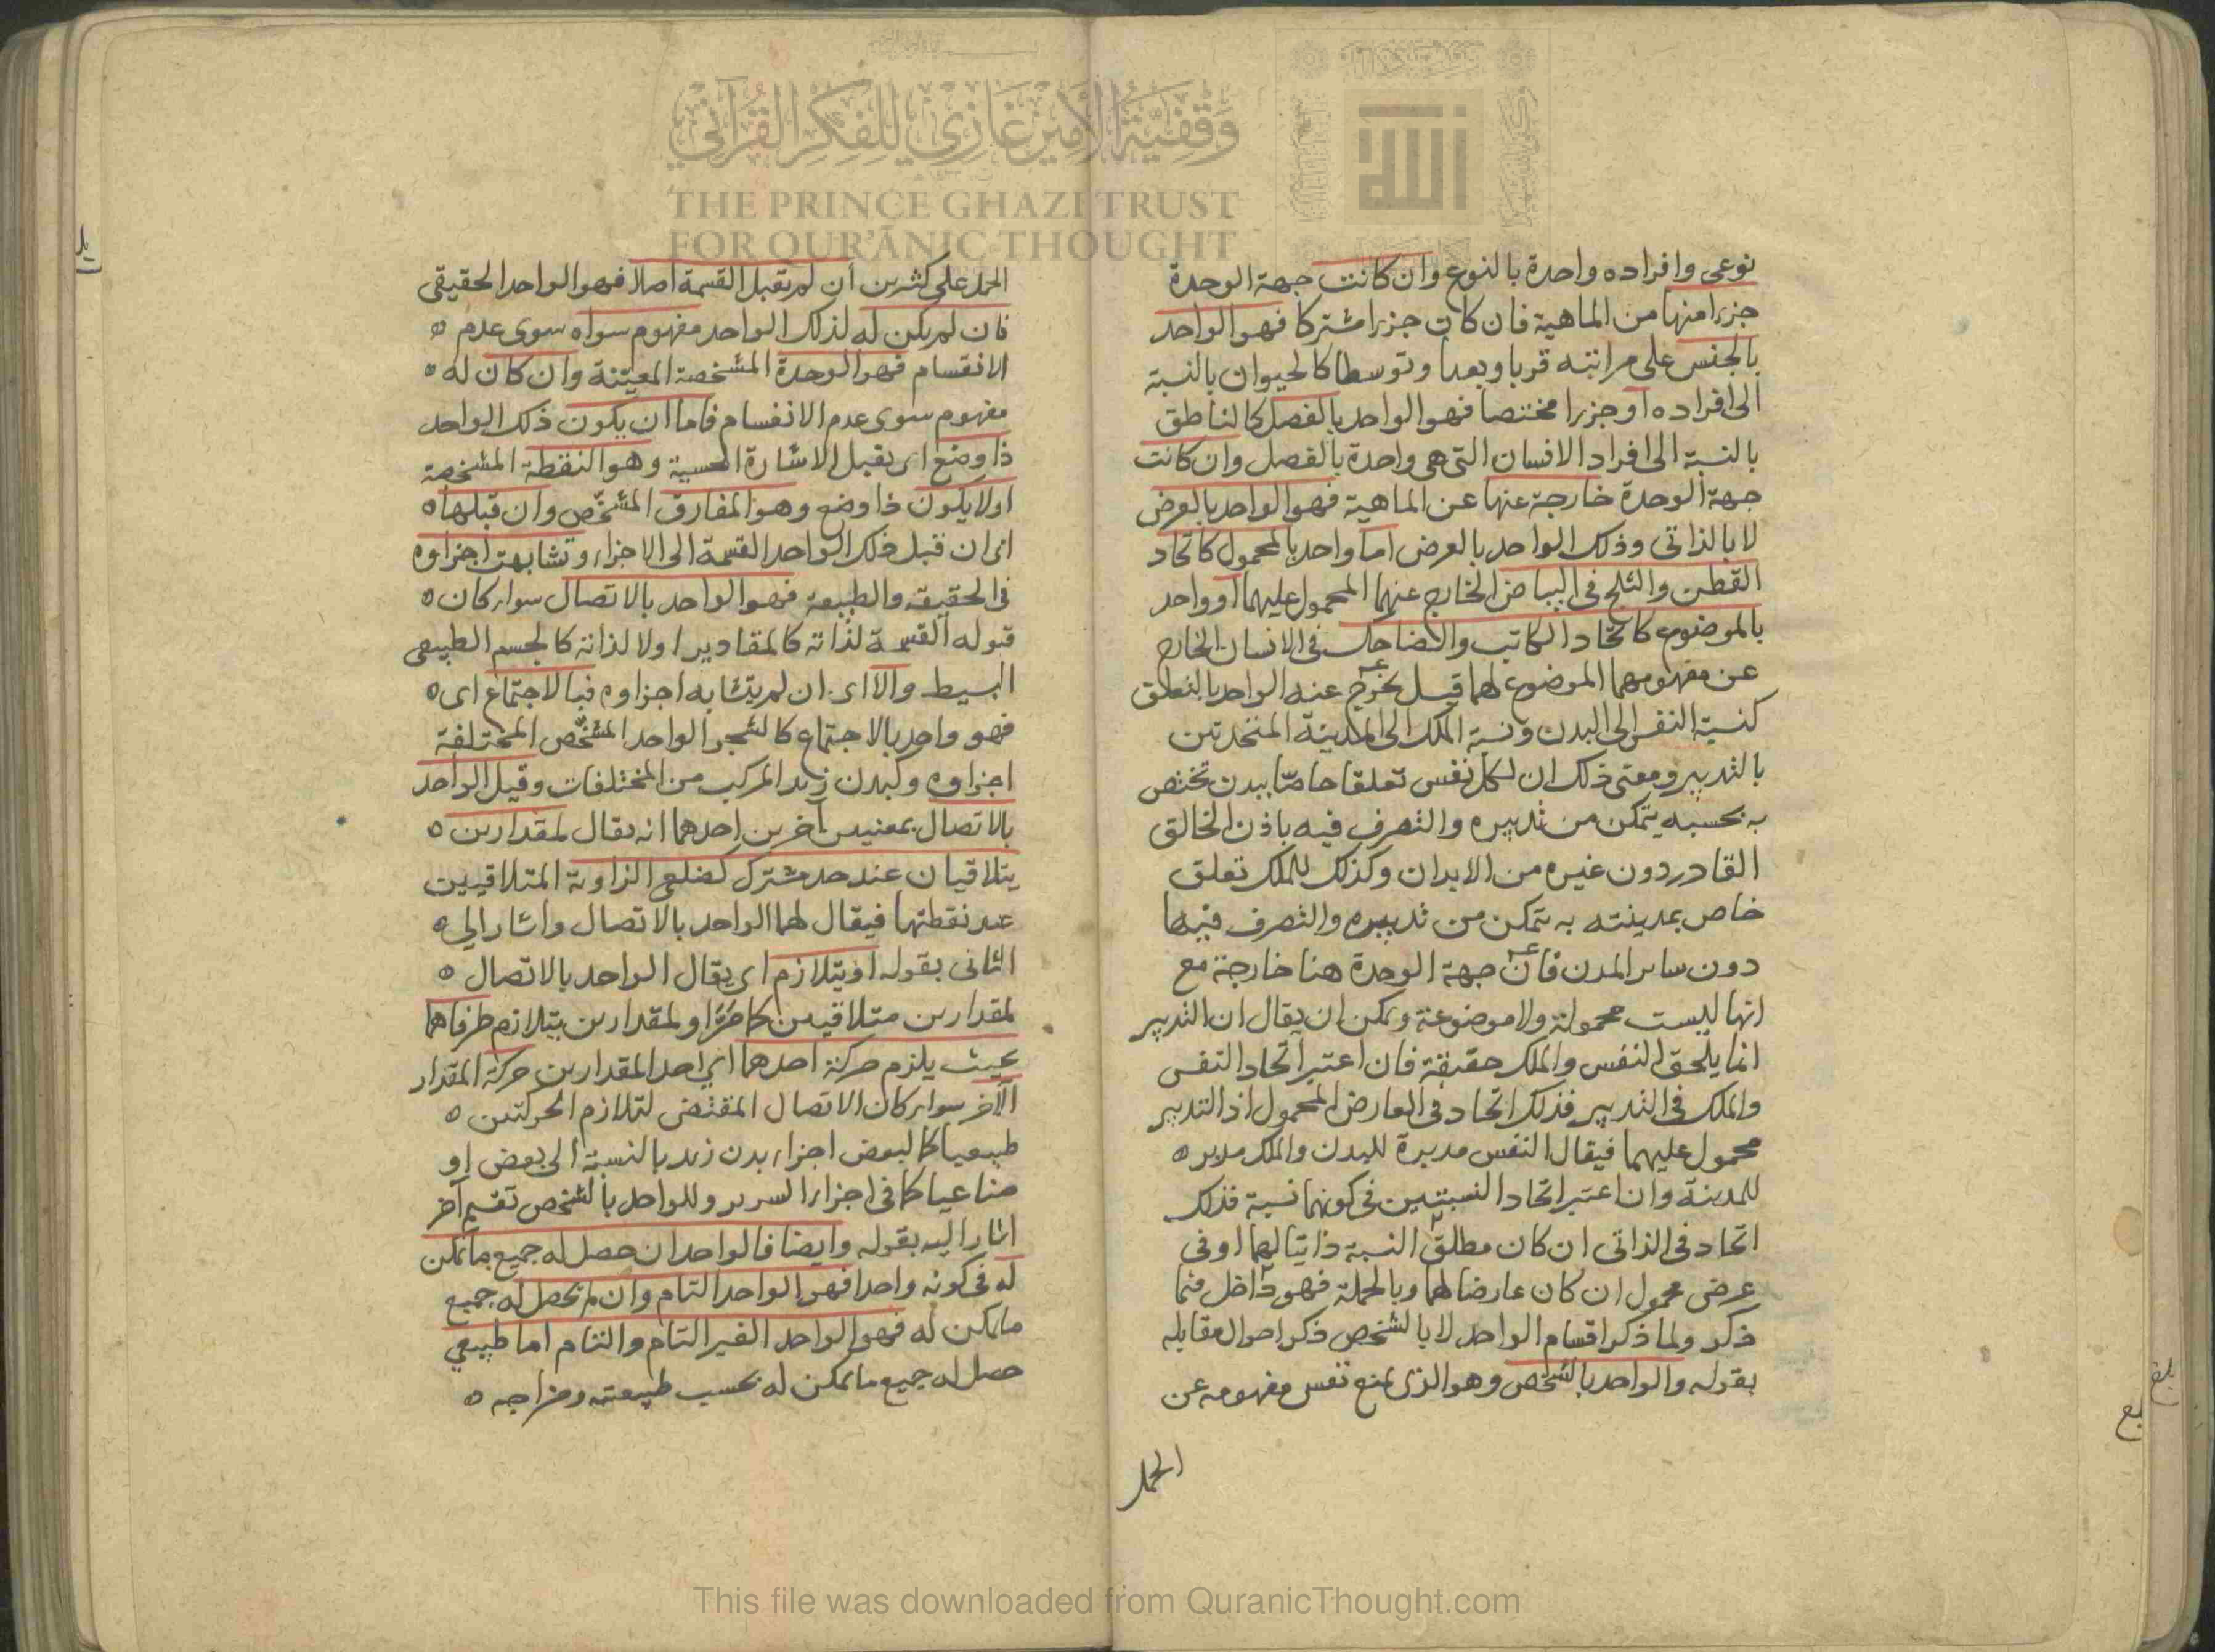 نوعى وافراده واحدة بالنوع وان كانت جهة الوحدة
جزءا منها من الماهية فان كان جزءا مشتركا فهو الواحد
بالجنس على مراتبه قربا وبعدا وتوسطا كالحيوان بالنسبة
الى افراده او جزءا مختصا فهو الواحد بالفصل كالناطق
بالنسبة الى افراد الانسان التى هى واحدة بالفصل وان كانت
جهة الوحدة خارجة عنها عن الماهية فهو الواحد بالعرض
لا بالذاتى وذلك الواحد بالعرض اما واحد بالمحمول كاتحاد
القطن والثلج فى البياض الخارج عنهما المحمول عليهما او واحد
بالموضوع كاتحاد الكاتب والضاحك فى الانسان الخارج
عن مفهومهما الموضوع لهما قيل يخرج عنه الواحد بالتعلق
كنسبة النفس الى البدن ونسبة الملك الى المدينة المتحدتين
بالتدبير ومعنى ذلك ان لكل نفس تعلقا خاصا ببدن تختص
به بحسبه يتمكن من تدبيره والتصرف فيه باذن الخالق
القادر دون غيره من الابدان وكذلك للملك تعلق
خاص بمدينته به يتمكن من تدبيره والتصرف فيها
دون ساير المدن فان جهة الوحدة هنا خارجة مع
انها ليست محمولة ولا موضوعة ويمكن ان يقال ان التدبير
انما يلحق النفس والملك حقيقة فان اعتبر اتحاد النفس
والملك فى التدبير فذلك اتحاد فى العارض المحمول اذ التدبير
محمول عليهما فيقال النفس مدبرة للبدن والملك مدبر ه
للمدينة وان اعتبر اتحاد النسبتين فى كونهما نسبة فذلك
اتحاد فى الذاتى ان كان مطلق النسبة ذاتيا لهما او فى
عرض محمول ان كان عارضا لهما وبالجملة فهو داخل فيما
ذكر ولما ذكر اقسام الواحد لا بالشخص ذكر احوال مقابله
بقوله والواحد بالشخص وهو الذى يمنع نفس مفهومه عن
الحمل
الحمل على كثيرين ان لم يقبل القسمة اصلا فهو الواحد الحقيقى
فان لم يكن له لذلك الواحد مفهوم سواه سوى عدم ه
الانقسام فهو الوحدة المشخصة المعينة وان كان له ه
مفهوم سوى عدم الانقسام فاما ان يكون ذلك الواحد
ذا وضع اى يقبل الاشارة الحسية وهو النقطة المشخصة
اولا يكون ذا وضع وهو المفارق المشخص وان قبلها ه
اى ان قبل ذلك الواحد القسمة الى الاجزاء وتشابهت اجزاوه
فى الحقيقة والطبيعة فهو الواحد بالاتصال سواء كان ه
قبوله القسمة لذاته كالمقادير اولا لذاته كالجسم الطبيعى
البسيط والا اى ان لم يتشابه اجزاوه فبالاجتماع اى ه
فهو واحد بالاجتماع كالشجر الواحد المشخص المختلفة
اجزاوه وكبدن زيد المركب من المختلفات وقيل الواحد
بالاتصال بمعنيين آخرين احدهما انه يقال لمقدارين ه
يتلاقيان عند حد مشترك كضلعى الزاوية المتلاقيين
عند نقطتها فيقال لهما الواحد بالاتصال واشار الى ه
الثانى بقوله او يتلازم اى يقال الواحد بالاتصال ه
لمقدارين متلاقيين كما مر او لمقدارين يتلازم طرفاهما
بحيث يلزم حركة احدهما اى احد المقدارين حركة المقدار
الآخر سواء كان الاتصال المقتضى لتلازم الحركتين ه
طبيعيا كالبعض اجزاء بدن زيد بالنسبة الى بعض او
صناعيا كما فى اجزاء السرير وللواحد بالشخص تقسيم آخر
اشار اليه بقوله وايضا فالواحد ان حصل له جميع ما يمكن
له فى كونه واحدا فهو الواحد التام وان لم يحصل له جميع
ما يمكن له فهو الواحد الغير التام والتام اما طبيعى
حصل له جميع ما يمكن له بحسب طبيعته ومزاجه ه
بلغ
وقفية الأمير غازي للفكر القرآني
THE PRINCE GHAZI TRUST
FOR QUR'ĀNIC THOUGHT
This file was downloaded from QuranicThought.com